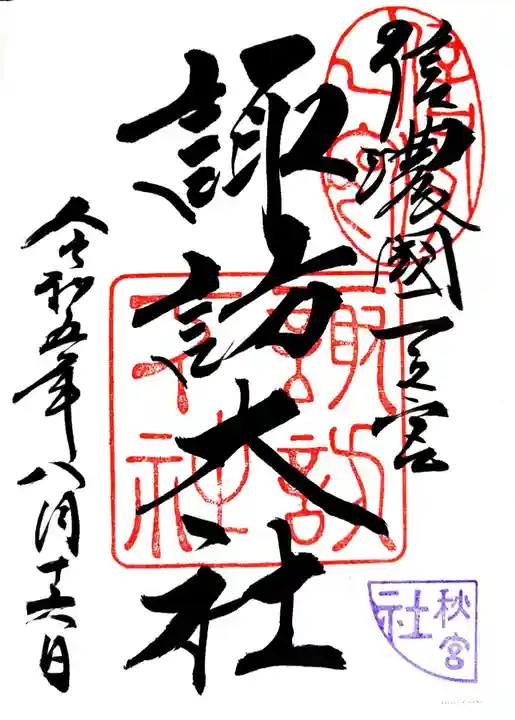 信濃國一之宮
諏訪大社
令和五年八月十六日
諏訪
大社
秋宮
社